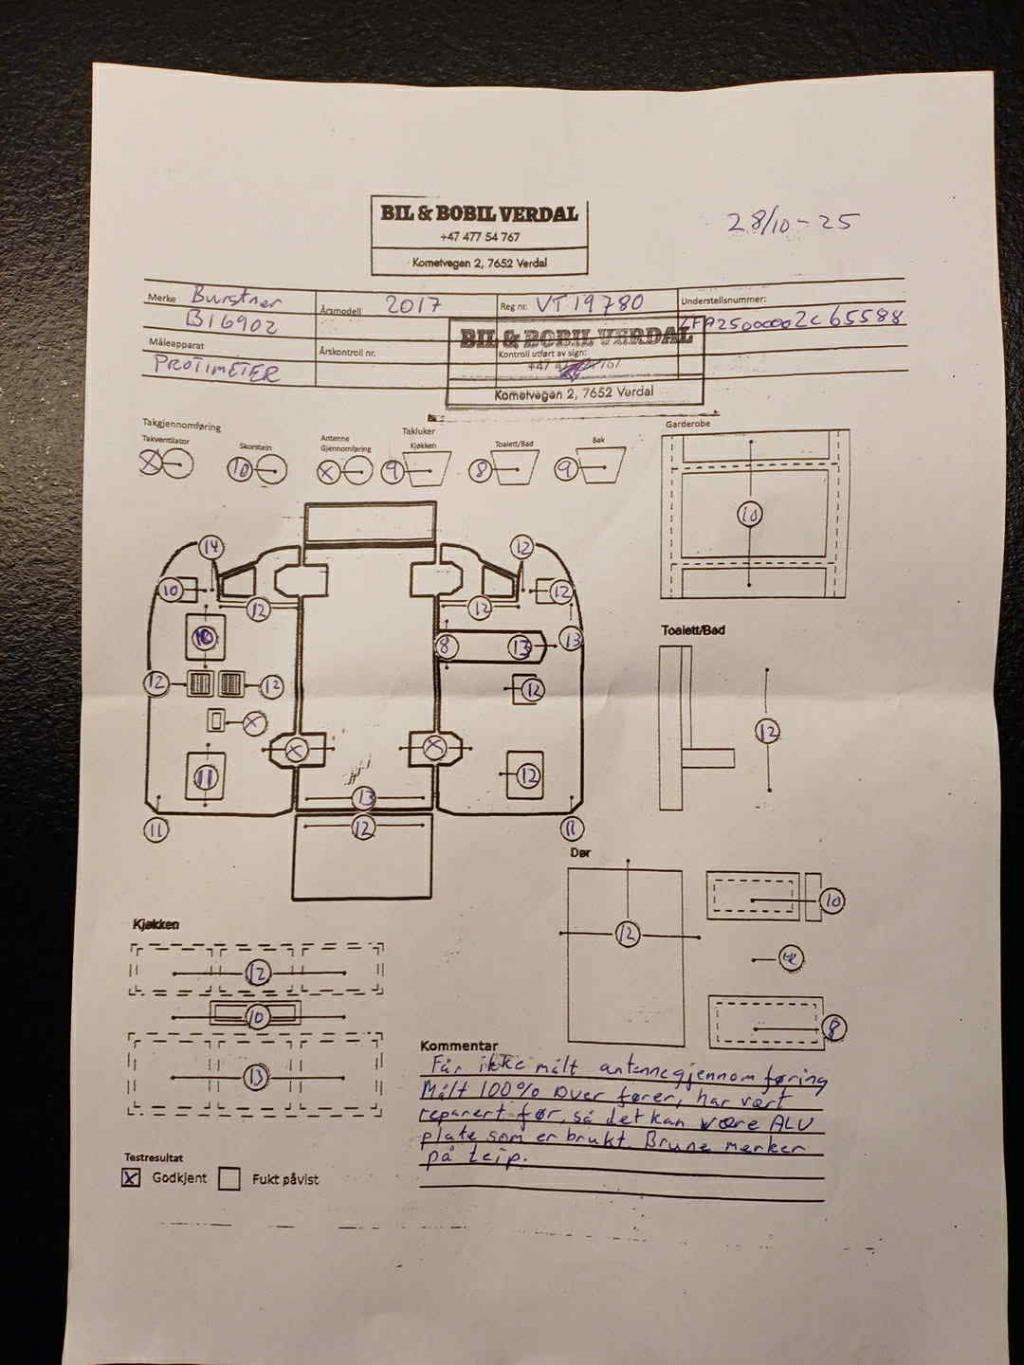 BIL & BOBIL VERDAL
+47 477 54 767
Kometvegen 2, 7652 Verdal
28/10-25
Merke Burstner
B16902
Årsmodell 2017
Reg nr. VT19780
Understellsnummer:
ZFA25000002C65588
Måleapparat
PROTIMETER
Årskontroll nr.
Kontroll utført av sign:
BIL & BOBIL VERDAL
+47
Kometvegen 2, 7652 Verdal
Takgjennomføring
Takventilator
Skorstein
Antenne
Gjennomføring
Takluker
Kjøkken
Toalett/Bad
Bak
Garderobe
X 10 X 9 8 9
10
14 12
10 12
12 12
8 13 13
12 12 12
X
X X
11 12
13
11 12 11
Toalett/Bad
12
Dør
12
10
8
Kjøkken
12
10
13
Kommentar
Får ikke målt antennegjennomføring
Målt 100% over fører, har vært
reparert før, så det kan være ALU
plate som er brukt. Brune merker
på teip.
Testresultat
X Godkjent
Fukt påvist